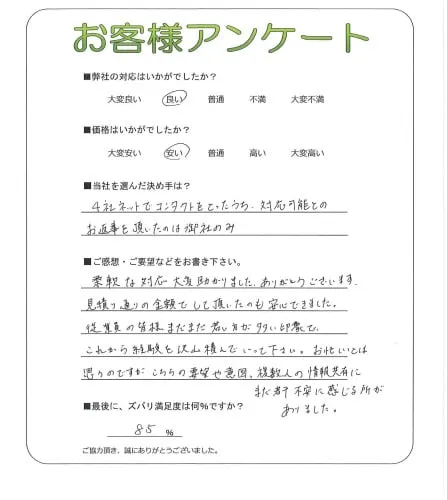 お客様アンケート
■弊社の対応はいかがでしたか?
大変良い 良い 普通 不満 大変不満
■価格はいかがでしたか?
大変安い 安い 普通 高い 大変高い
■当社を選んだ決め手は?
4社ネットでコンタクトをとったうち、対応可能との
お返事を頂いたのは御社のみ
■ご感想・ご要望などをお書き下さい。
柔軟な対応大変助かりました。ありがとうございます。
見積り通りの金額でして頂いたのも安心できました。
従業員の皆様まだまだ若い方が多い印象で、
これから経験を沢山積んでいって下さい。お忙しいとは
思うのですが こちらの要望や意図、複数人の情報共有に
まだ若干不安に感じる所が
ありました。
■最後に、ズバリ満足度は何%ですか?
85 %
ご協力頂き、誠にありがとうございました。